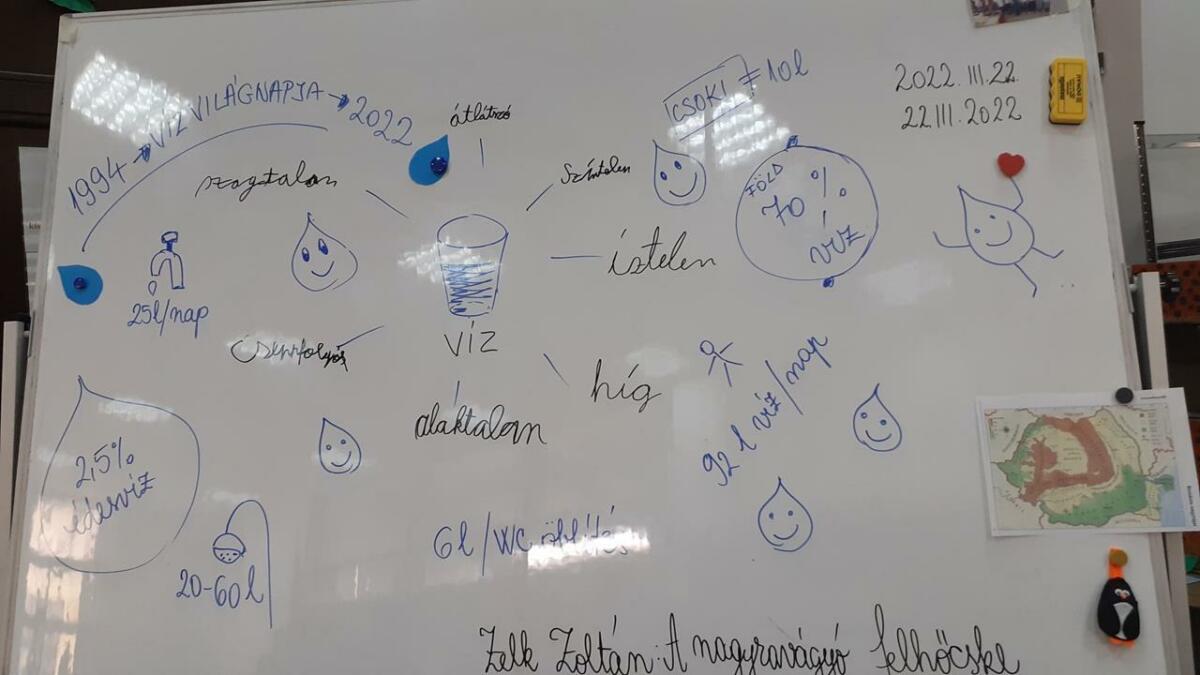 1994 → VÍZ VILÁGNAPJA → 2022
átlátszó
CSOKI = 10l
2022.III.22.
22.III.2022
szagtalan
színtelen
FÖLD
70%
víz
ístelen
25l/nap
VÍZ
híg
aláktalan
92 l víz/nap
2,5%
édesvíz
6l/WC öblítés
20-60l
Zelk Zoltán: A nagyravágyó felhőcske